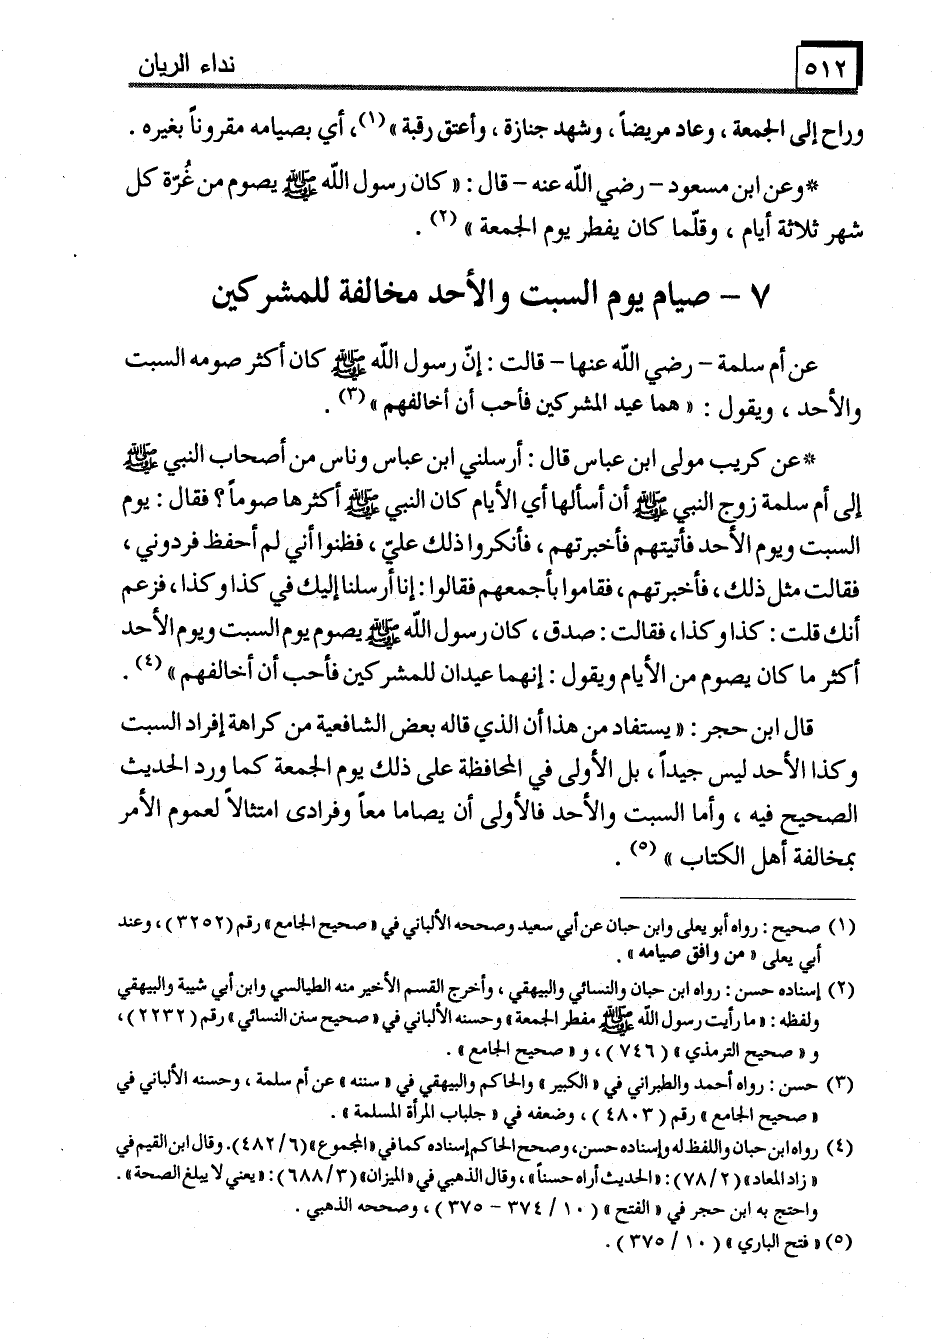 ٥١٢ نداء الريان
وراح إلى الجمعة ، وعاد مريضاً ، وشهد جنازة ، وأعتق رقبة »(١)، أي بصيامه مقروناً بغيره .
*وعن ابن مسعود – رضي اللّه عنه – قال : « كان رسول اللّه ﷺ يصوم من غُرّة كل
شهر ثلاثة أيام ، وقلّما كان يفطر يوم الجمعة »(٢) .
٧ – صيام يوم السبت والأحد مخالفة للمشركين
عن أم سلمة – رضي اللّه عنها – قالت : إنّ رسول اللّه ﷺ كان أكثر صومه السبت
والأحد ، ويقول : « هما عيد المشركين فأحب أن أخالفهم »(٣) .
*عن كريب مولى ابن عباس قال : أرسلني ابن عباس وناس من أصحاب النبي ﷺ
إلى أم سلمة زوج النبي ﷺ أن أسألها أي الأيام كان النبي ﷺ أكثرها صوماً ؟ فقال : يوم
السبت ويوم الأحد فأتيتهم فأخبرتهم ، فأنكروا ذلك عليّ ، فظنوا أني لم أحفظ فردوني ،
فقالت مثل ذلك ، فأخبرتهم ، فقاموا بأجمعهم فقالوا : إنا أرسلنا إليك في كذا وكذا ، فزعم
أنك قلت : كذا وكذا ، فقالت : صدق ، كان رسول اللّه ﷺ يصوم يوم السبت ويوم الأحد
أكثر ما كان يصوم من الأيام ويقول : إنهما عيدان للمشركين فأحب أن أخالفهم »(٤) .
قال ابن حجر : « يستفاد من هذا أن الذي قاله بعض الشافعية من كراهة إفراد السبت
وكذا الأحد ليس جيداً ، بل الأولى في المحافظة على ذلك يوم الجمعة كما ورد الحديث
الصحيح فيه ، وأما السبت والأحد فالأولى أن يصاما معاً وفرادى امتثالاً لعموم الأمر
بمخالفة أهل الكتاب »(٥) .
(١) صحيح : رواه أبو يعلى وابن حبان عن أبي سعيد وصححه الألباني في « صحيح الجامع » رقم (٣٢٥٢) ، وعند
أبي يعلى « من وافق صيامه » .
(٢) إسناده حسن : رواه ابن حبان والنسائي والبيهقي ، وأخرج القسم الأخير منه الطيالسي وابن أبي شيبة والبيهقي
ولفظه : « ما رأيت رسول اللّه ﷺ مفطر الجمعة» وحسنه الألباني في « صحيح سنن النسائي» رقم (٢٢٣٢) ،
و « صحيح الترمذي » (٧٤٦) ، و « صحيح الجامع » .
(٣) حسن : رواه أحمد والطبراني في « الكبير » والحاكم والبيهقي في « سننه » عن أم سلمة ، وحسنه الألباني في
« صحيح الجامع » رقم (٤٨٠٣) ، وضعفه في « جلباب المرأة المسلمة » .
(٤) رواه ابن حبان واللفظ له وإسناده حسن، وصحح الحاكم إسناده كما في « المجموع » (٤٨٢/٦). وقال ابن القيم في
« زاد المعاد» (٧٨/٢) : « الحديث أراه حسناً » ، وقال الذهبي في « الميزان» (٦٨٨/٣) : « يعني لا يبلغ الصحة » .
واحتج به ابن حجر في « الفتح » (١٠ / ٣٧٤ – ٣٧٥) ، وصححه الذهبي .
(٥) « فتح الباري » (١٠ / ٣٧٥) .